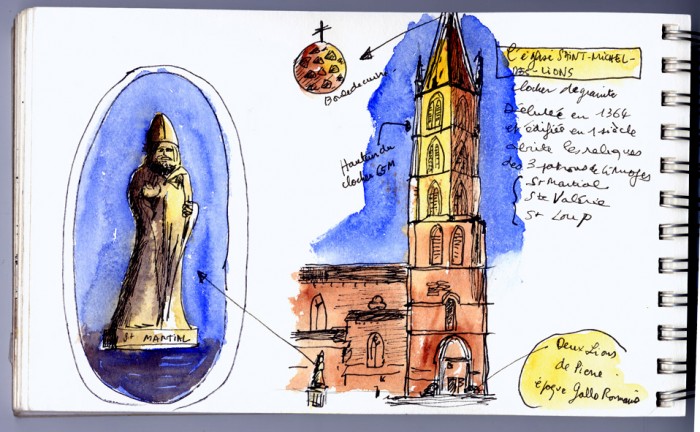 L'église SAINT-MICHEL-
DES-LIONS
clocher de granite
Débutée en 1364
et édifiée en 1 siècle
abrite les reliques
des 3 patrons de Limoges
St Martial
Ste Valérie
St Loup
Boule de cuivre
Hauteur du
clocher 65M
St MARTIAL
Deux Lions
de Pierre
époque Gallo Romaine